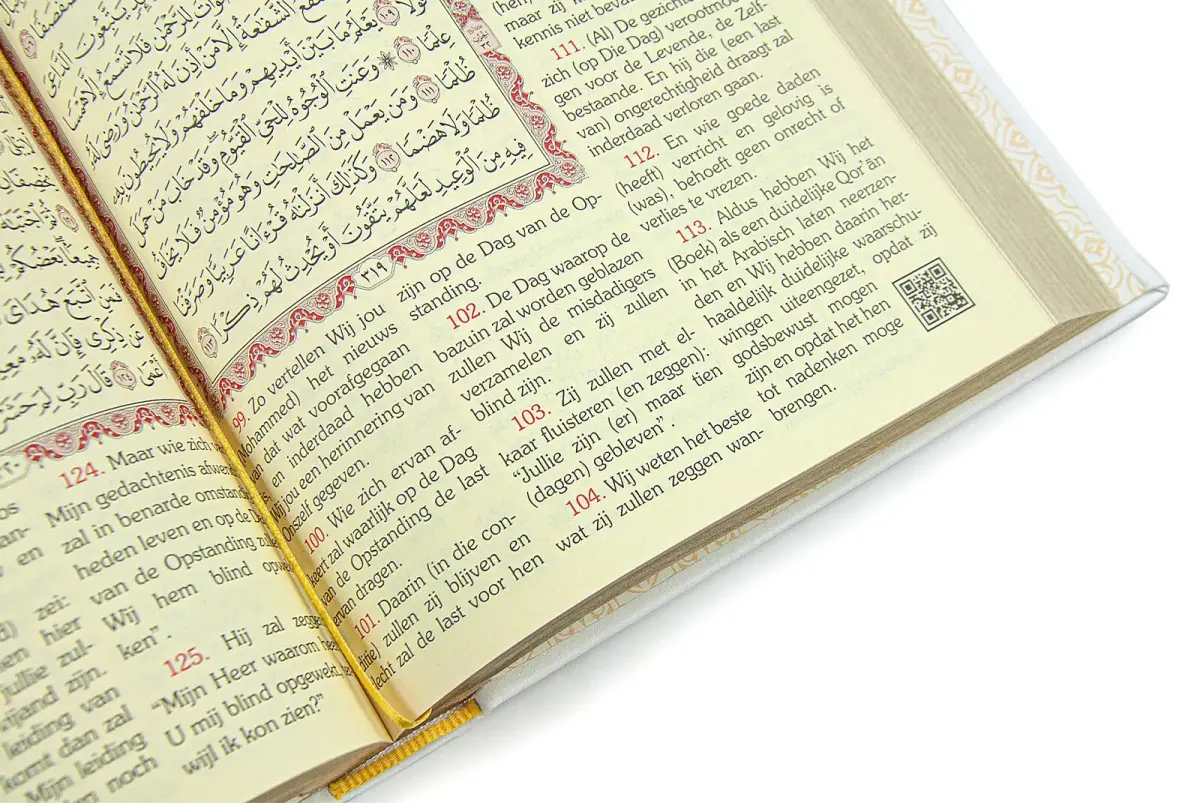 يَتَّبِعُونَ الدَّاعِيَ
الْأَصْوَاتُ لِلرَّحْمَٰنِ فَلَا تَسْمَعُ إِلَّا هَمْسًا
الشَّفَاعَةُ إِلَّا مَنْ أَذِنَ لَهُ الرَّحْمَٰنُ وَرَضِيَ لَهُ
قَوْلًا ١٠٩ يَعْلَمُ مَا بَيْنَ أَيْدِيهِمْ وَمَا خَلْفَهُمْ وَلَا يُحِيطُونَ بِهِ
عِلْمًا ١١٠ وَعَنَتِ الْوُجُوهُ لِلْحَيِّ الْقَيُّومِ وَقَدْ خَابَ مَنْ حَمَلَ
ظُلْمًا ١١١ وَمَن يَعْمَلْ مِنَ الصَّالِحَاتِ وَهُوَ مُؤْمِنٌ فَلَا يَخَافُ
ظُلْمًا وَلَا هَضْمًا ١١٢ وَكَذَٰلِكَ أَنزَلْنَاهُ قُرْآنًا عَرَبِيًّا وَصَرَّفْنَا
فِيهِ مِنَ الْوَعِيدِ لَعَلَّهُمْ يَتَّقُونَ أَوْ يُحْدِثُ لَهُمْ ذِكْرًا ١١٣
٣١٩
99. Zo vertellen Wij jou
Mohammed) het nieuws
van dat wat voorafgegaan
is, en inderdaad hebben
Wij jou een herinnering van
Onszelf gegeven.
100. Wie zich ervan af-
keert zal waarlijk op de Dag
van de Opstanding de last
ervan dragen.
101. Daarin (in die con-
ditie) zullen zij blijven en
slecht zal de last voor hen
zijn op de Dag van de Op-
standing.
102. De Dag waarop de
bazuin zal worden geblazen
zullen Wij de misdadigers
verzamelen en zij zullen
blind zijn.
103. Zij zullen met el-
kaar fluisteren (en zeggen):
“Jullie zijn (er) maar tien
(dagen) gebleven”.
104. Wij weten het beste
wat zij zullen zeggen wan-
maar zij
kennis niet
111. (Al) De gezichten
zich (op Die Dag) verootmoe
gen voor de Levende, de Zelf-
bestaande. En hij die (een last
van) ongerechtigheid draagt zal
inderdaad verloren gaan.
112. En wie goede daden
(heeft) verricht en gelovig is
(was), behoeft geen onrecht of
verlies te vrezen.
113. Aldus hebben Wij het
(Boek) als een duidelijke Qor’ān
in het Arabisch laten neerzen-
den en Wij hebben daarin her-
haaldelijk duidelijke waarschu-
wingen uiteengezet, opdat zij
godsbewust mogen
zijn en opdat het hen
tot nadenken moge
brengen.
فَمَنِ اتَّبَعَ هُدَايَ
عَن ذِكْرِي فَإِنَّ لَهُ
١٢٤ قَالَ رَبِّ لِمَ حَشَرْ
en
zei:
hier
jullie zul-
zijn.
leiding van
komt dan zal
Mijn leiding
noch
124. Maar wie zich
Mijn gedachtenis
zal in benarde
heden leven en op de
van de Opstanding
Wij hem blind
ken”.
125. Hij zal
“Mijn Heer waarom
U mij blind opgewekt,
wijl ik kon zien?”